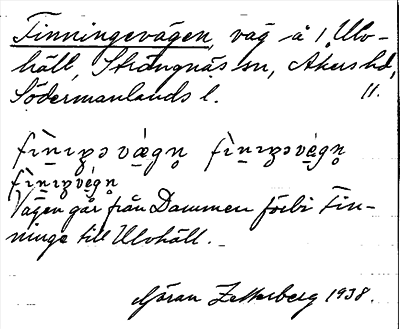 Finningevägen, väg å 1, Ulv-
häll, Strängnäs sn, Åkers hd,
Södermanlands l. 11.
fìn̲ɪŋə væ̀gn̥ fìn̲ɪŋə vè̲gn̥
fìn̲ɪŋvè̲gn̥
Vägen går från Dammen förbi Fin-
ninge till Ulvhäll.
Göran Zetterberg 1938.